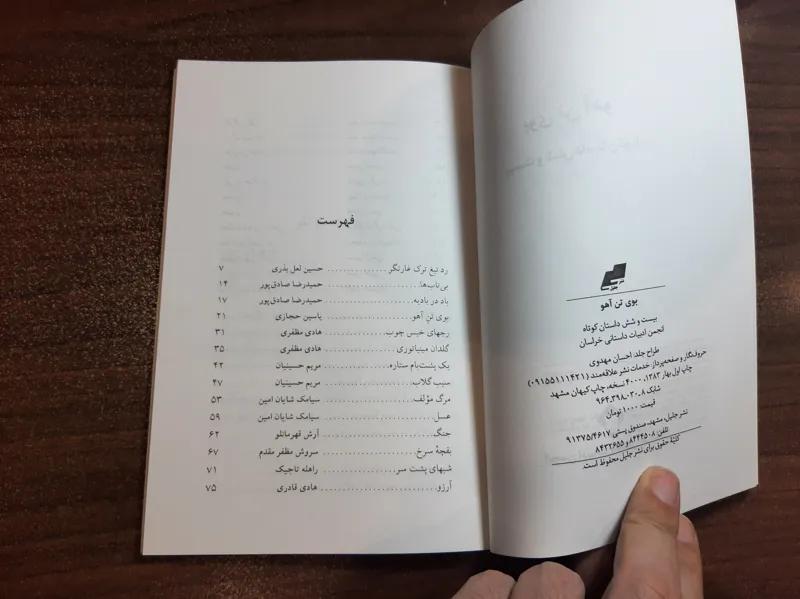 نشر جلیل
بوی تن آهو
بیست و شش داستان کوتاه
انجمن ادبیات داستانی خراسان
طراح جلد: احسان مهدوی
حروف‌نگار و صفحه‌پرداز خدمات نشر علاقه‌مند (۰۹۱۵۵۱۱۱۴۲۱)
چاپ اول بهار ۱۳۸۳، ۴۰۰۰ نسخه، چاپ کیهان مشهد
شابک ۸-۰۲۰-۳۹۸-۹۶۴
قیمت ۱۰۰۰ تومان
نشر جلیل، مشهد، صندوق پستی ۹۱۳۷۵/۴۶۱۷
تلفن: ۸۴۴۴۵۰۸ و ۸۴۳۲۶۵۵
کلیهٔ حقوق برای نشر جلیل محفوظ است.
فهرست
رد تیغ ترک غارتگر ............ حسین لعل بذری ۷
بی‌تاب‌ها ............ حمیدرضا صادق‌پور ۱۴
باد در بادیه ............ حمیدرضا صادق‌پور ۱۷
بوی تنِ آهو ............ یاسین حجازی ۲۱
رجهای خیس چوب ............ هادی مظفری ۳۱
گلدان مینیاتوری ............ هادی مظفری ۳۵
یک پشت‌بام ستاره ............ مریم حسینیان ۴۲
سیب گلاب ............ مریم حسینیان ۴۷
مرگ مؤلف ............ سیامک شایان امین ۵۳
عسل ............ سیامک شایان امین ۵۹
جنگ ............ آرش قهرمانلو ۶۲
بقچهٔ سرخ ............ سروش مظفر مقدم ۶۷
شبهای پشت سر ............ راهله تاجیک ۷۱
آرزو ............ هادی قادری ۷۵